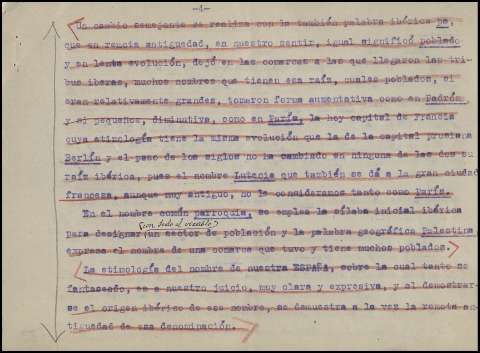 -4-
Un cambio semejante se realiza con la también palabra ibérica pa,
que en rancia antiguedad, en nuestro sentir, igual significó poblado
y en lenta evolución, dejó en las comarcas a las que llegaron las tri-
bus iberas, muchos nombres que tienen esa raíz, cuales poblados, si
eran relativamente grandes, tomaron forma aumentativa como en Padrón
y si pequeños, diminutiva, como en París, la hoy capital de Francia
cuya etimología tiene la misma evolución que la de la capital prusiana
Berlín y el paso de los siglos no ha cambiado en ninguna de las dos su
raíz ibérica, pues el nombre Lutecia que también se dá a la gran ciudad
francesa, aunque muy antiguo, no le consideramos tanto como París.
En el nombre común parroquia, se emplea la sílaba inicial ibérica
(con todo el vocablo)
para designar un sector de población y la palabra geográfica Palestina
expresa el nombre de una comarca que tuvo y tiene muchos poblados.
La etimología del nombre de nuestra ESPAÑA, sobre la cual tanto se
fantaseado, es a nuestro juicio, muy clara y expresiva, y al demostrar-
se el origen ibérico de ese nombre, se demuestra a la vez la remota an-
tiguedad de esa denominación.